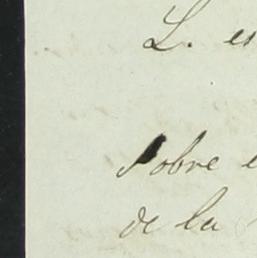 L. es
Sobre e
de la